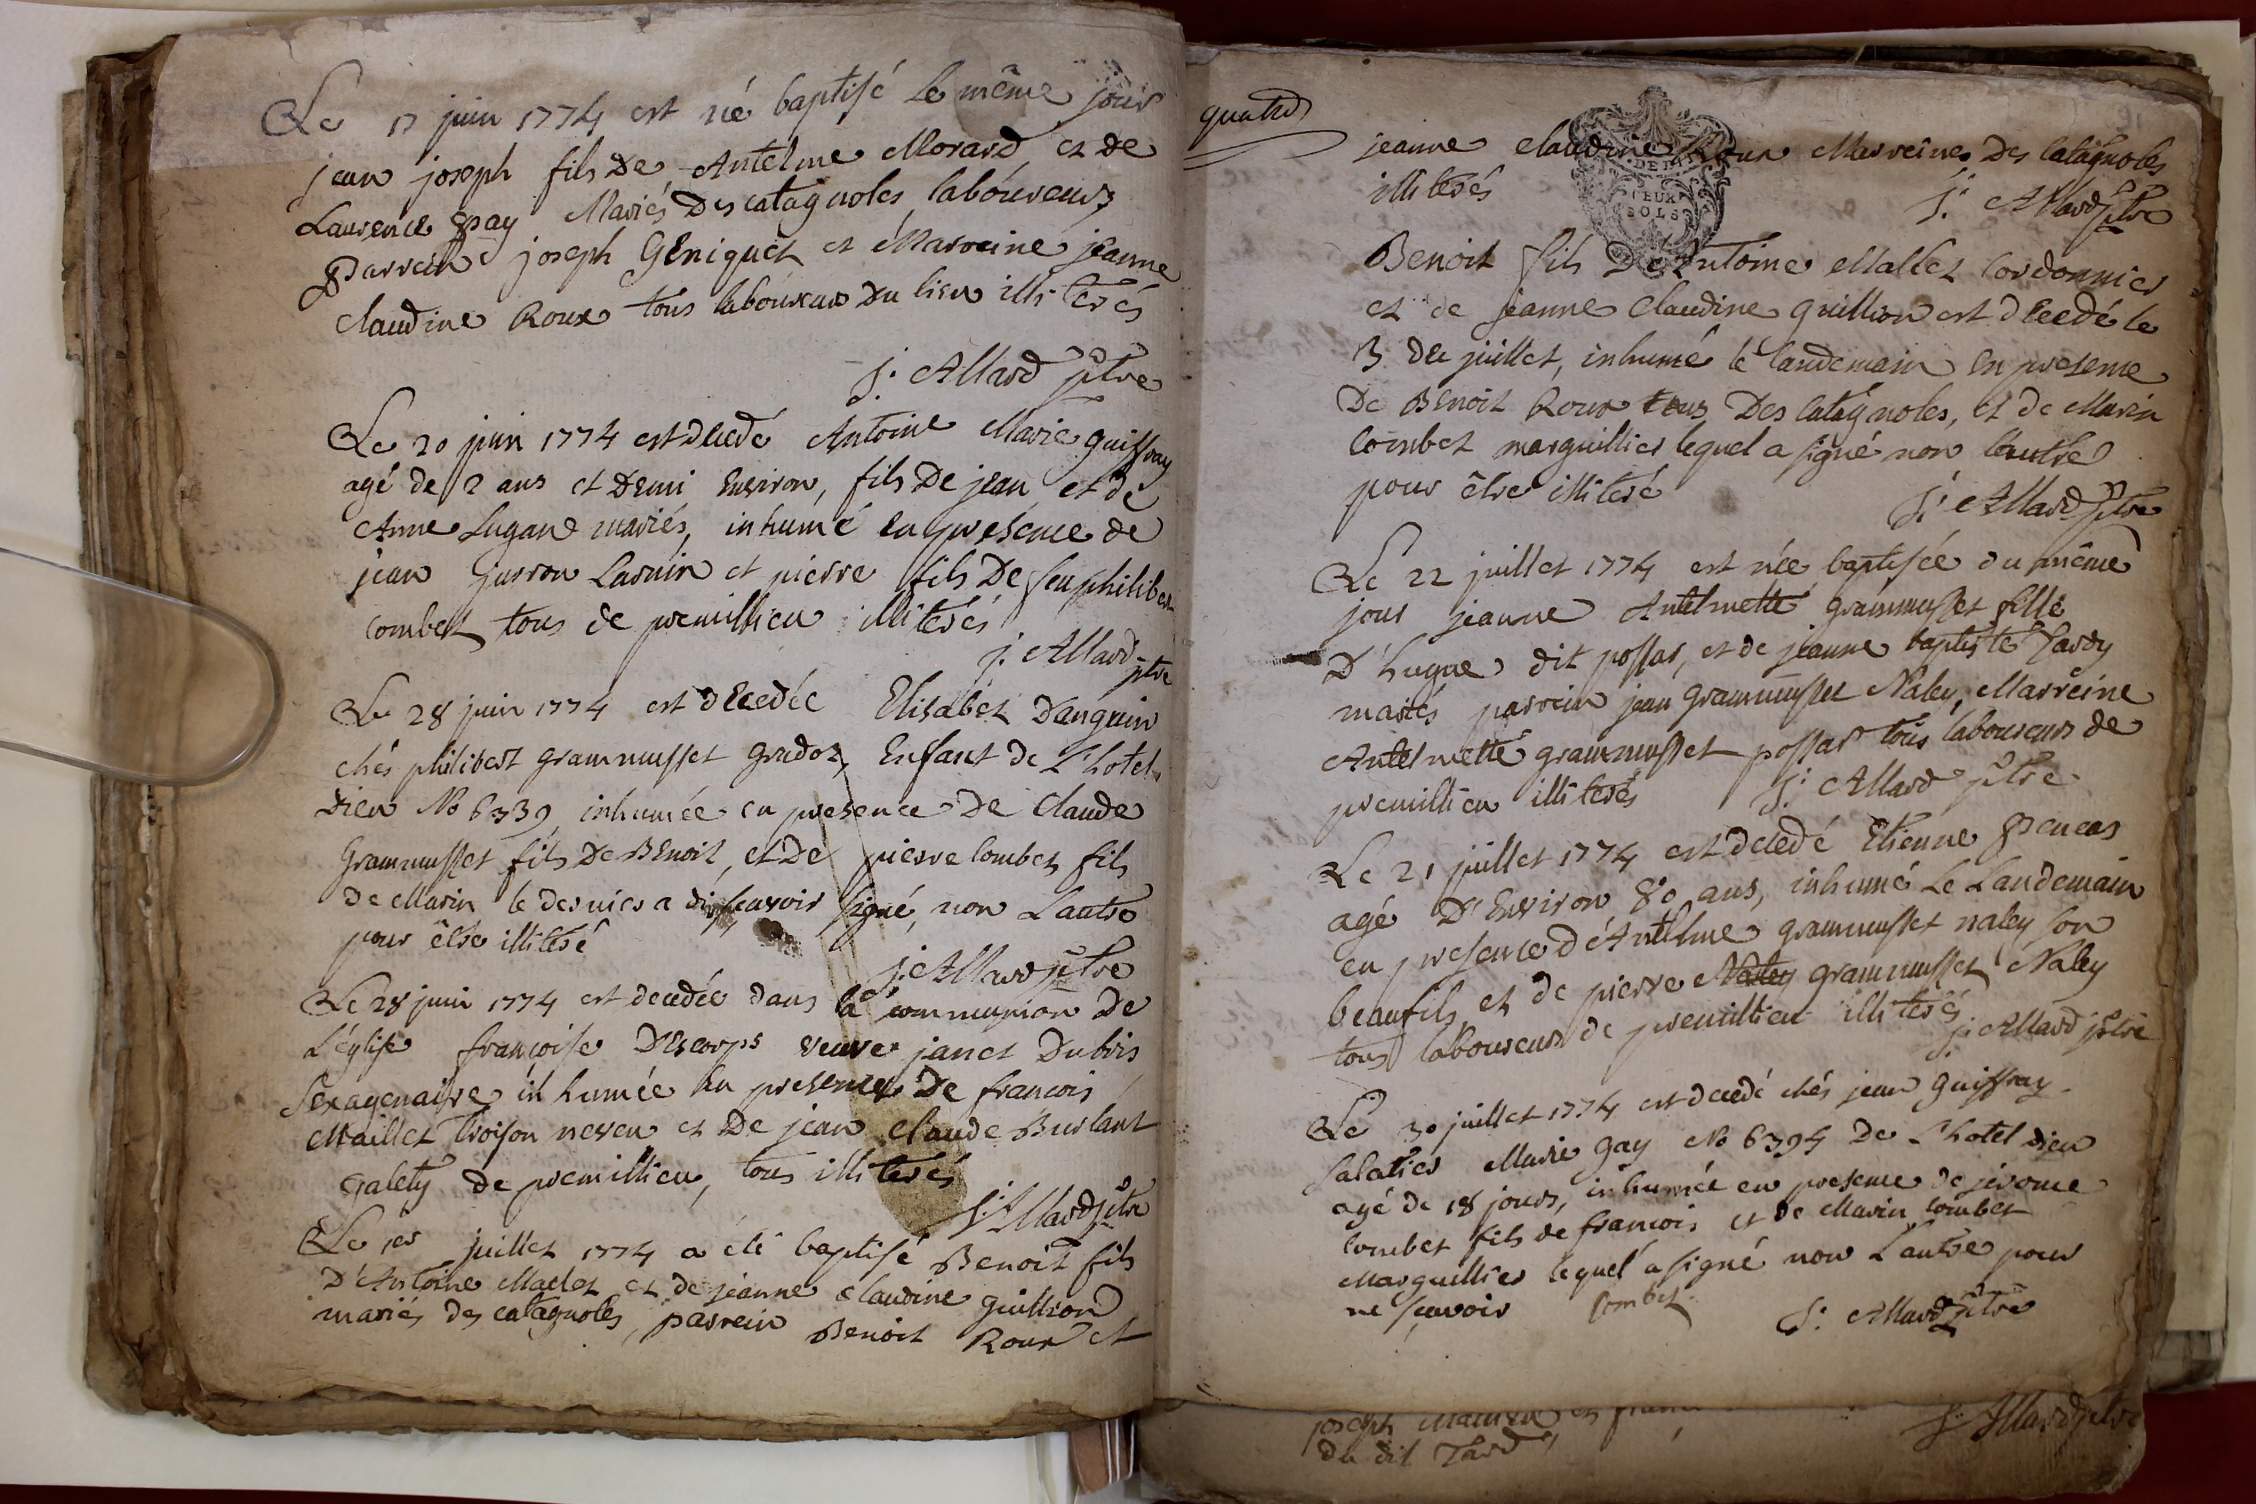 Le 17 juin 1774 est né baptisé le même jour
jean joseph fils De Antelme Morard et de
Laurence Pay Mariés Des catagnoles laboureurs
Parrein joseph GEniquet et Marreine jeanne
claudine Roux tous laboureurs Du lieu illiterés
j. Allard ptre
Le 20 juin 1774 est decedé Antoine Marie guiffray
agé de 2 ans et Demi Environ, fils De jean et de
Anne Lugand mariés, inhumé en presence de
jean jurron Larnin et pierre fils De feu philibert
combet tous de premillieu illiterés
j. Allard ptre
Le 28 juin 1774 est dEcedée Elisabet Danguin
chés philibert grammusset gradoz, Enfant de L'hotel
Dieu No 6339 inhumée en presence De Claude
grammusset fils De BEnoit, et De pierre Combet fils
de Marin le dernier a dit scavoir signé, non L'autre
pour être illiteré
j. Allard ptre
Le 28 juin 1774 est decedée dans la communion De
L'église françoise DEscorps veuve janet Dubois
sexagenaire inhumée En presence De francois
Maillet Troison neveu et De jean claude Burlant
galety de premillieu, tous illiterés
j. Allard ptre
Le 1er juillet 1774 a été baptisé Benoit fils
D'Antoine Mallet et de jeanne claudine guillion
mariés des catagnoles, parrein Benoit Roux et
quatre
jeanne claudine Roux Marreine Des Catagnoles
illiterés
DEUX
SOLS
j. Allard ptre
Benoit fils De Antoine Mallet Cordonnier
et de jeanne Claudine guillion est dEcedé le
3 De juillet, inhumé le landemain en presence
De BEnoit Roux tous Des Catagnoles, et de Marin
Combet marguillier lequel a signé non l'autre
pour être illiteré
j. Allard ptre
Le 22 juillet 1774 est née baptisée du même
jour jeanne Antelmette grammusset fille
D'hugue dit possar, et de jeanne baptiste Tardy
mariés parrein jean grammusset Naley, Marreine
Antelmette grammusset possar tous laboureurs de
premillieu illiterés
j. Allard ptre
Le 21 juillet 1774 est decedé Etienne Peneas
agé D'Environ 80 ans, inhumé Le Landemain
en presence d'Antelme grammusset naley son
beaufils et de pierre Naley grammusset Naley
tous laboureurs de premillieu illiterés
j. Allard ptre
Le 30 juillet 1774 est decedé chés jean guiffray
salatier Marie gay No 6394 De L'hotel Dieu
agé de 18 jours, inhumée en presence de jérome
Combet fils de francois et de Marin Combet
Marguillier lequel a signé non L'autre pour
ne scavoir Combet
j. Allard ptre
joseph
du dit Tard
j. Allard ptre